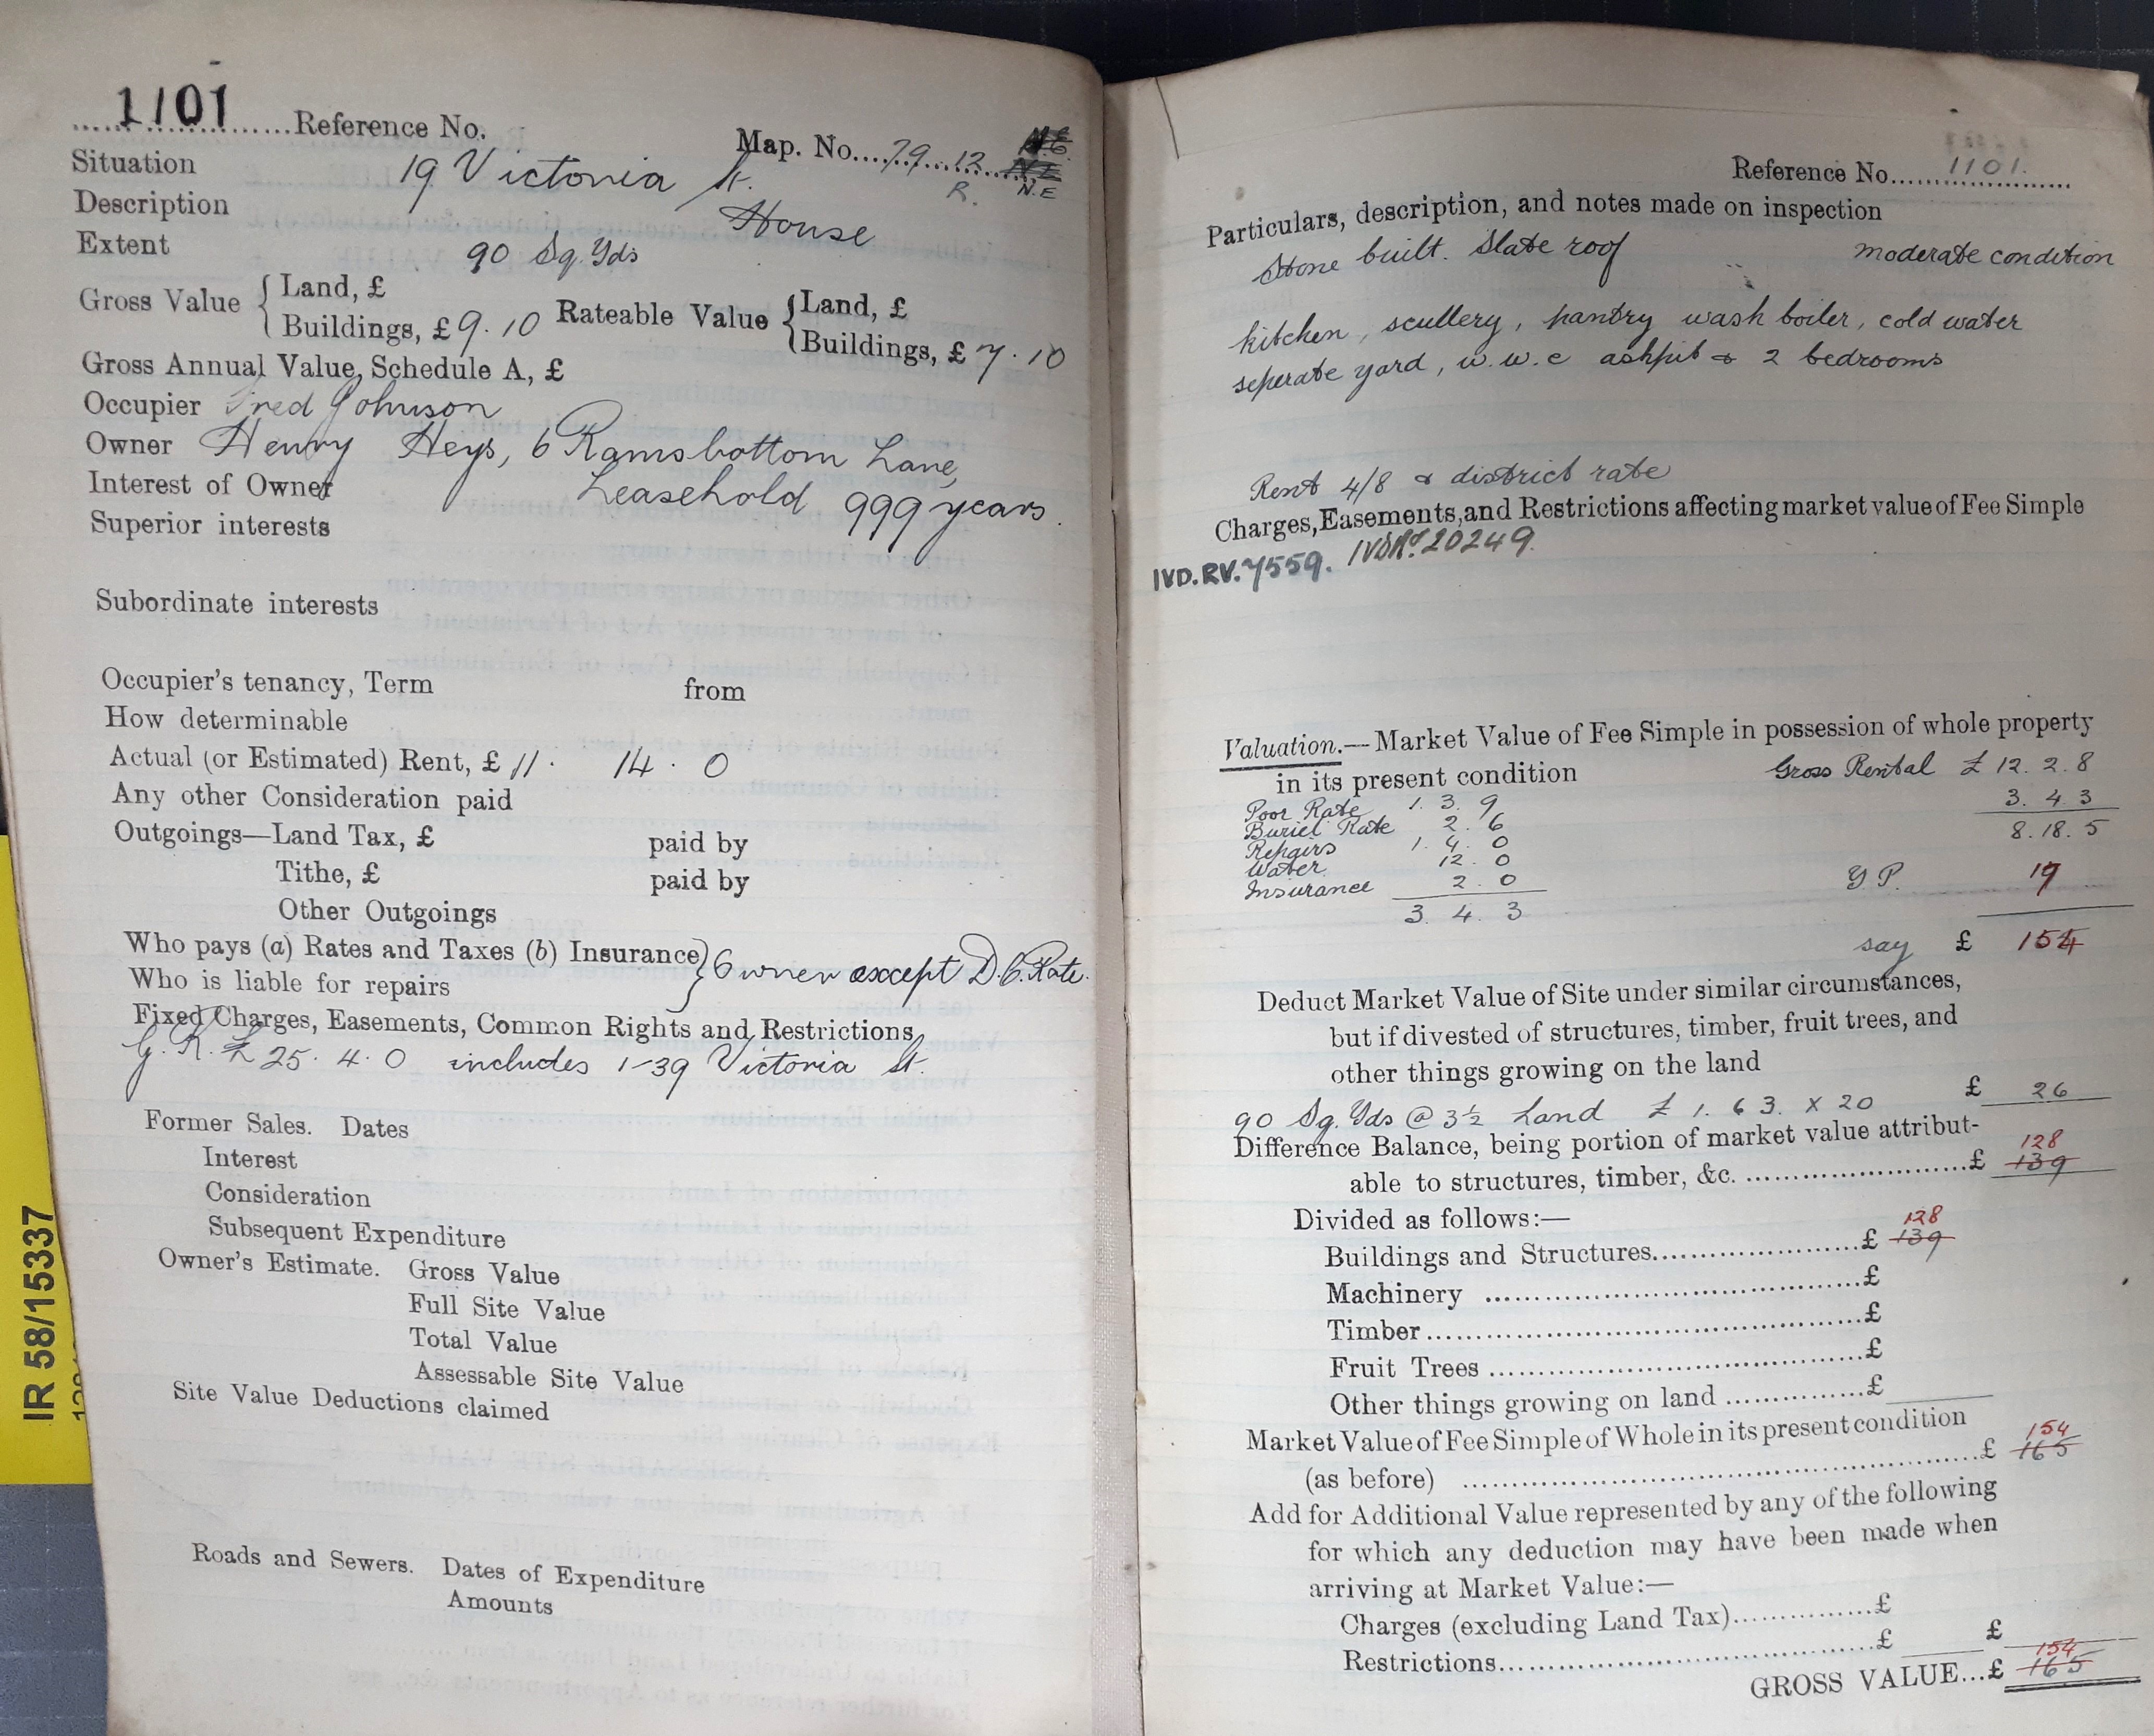 1101
Reference No.
Map. No. 79 12 N.E
R.
Situation 19 Victoria St.
Description House
Extent 90 Sq. Yds
Gross Value { Land, £
Buildings, £ 9. 10
Rateable Value { Land, £
Buildings, £ 7. 10
Gross Annual Value, Schedule A, £
Occupier Fred Johnson
Owner Henry Heys, 6 Ramsbottom Lane,
Interest of Owner Leasehold 999 years.
Superior interests
Subordinate interests
Occupier's tenancy, Term from
How determinable
Actual (or Estimated) Rent, £ 11. 14. 0
Any other Consideration paid
Outgoings—Land Tax, £ paid by
Tithe, £ paid by
Other Outgoings
Who pays (a) Rates and Taxes (b) Insurance
Who is liable for repairs
} Owner except D.C. Rate.
Fixed Charges, Easements, Common Rights and Restrictions
G. R. £25. 4. 0 includes 1-39 Victoria St.
Former Sales. Dates
Interest
Consideration
Subsequent Expenditure
Owner's Estimate. Gross Value
Full Site Value
Total Value
Assessable Site Value
Site Value Deductions claimed
Roads and Sewers. Dates of Expenditure
Amounts
IR 58/15337
Reference No. 1101.
Particulars, description, and notes made on inspection
Stone built. Slate roof moderate condition
kitchen, scullery, pantry wash boiler, cold water
seperate yard, w.w.c ashpit & 2 bedrooms
Rent 4/8 & district rate
Charges, Easements, and Restrictions affecting market value of Fee Simple
IVD. RV. 7559. 20249.
Valuation.—Market Value of Fee Simple in possession of whole property
in its present condition Gross Rental £ 12. 2. 8
Poor Rate 1. 3. 9 3. 4 3
Buriel Rate 2. 6 8. 18. 5
Repairs 1. 4. 0
Water 12. 0
Insurance 2. 0 Y P.
3. 4. 3
say £ 154
Deduct Market Value of Site under similar circumstances,
but if divested of structures, timber, fruit trees, and
other things growing on the land
90 Sq. Yds @ 3½ Land £ 1. 6 3. x 20 £ 26
Difference Balance, being portion of market value attribut-
128
able to structures, timber, &c. £ 139
Divided as follows:—
128
Buildings and Structures £ 139
Machinery £
Timber £
Fruit Trees £
Other things growing on land £
Market Value of Fee Simple of Whole in its present condition
154
(as before) £ 165
Add for Additional Value represented by any of the following
for which any deduction may have been made when
arriving at Market Value:—
Charges (excluding Land Tax) £
Restrictions £ £
154
GROSS VALUE...£ 165